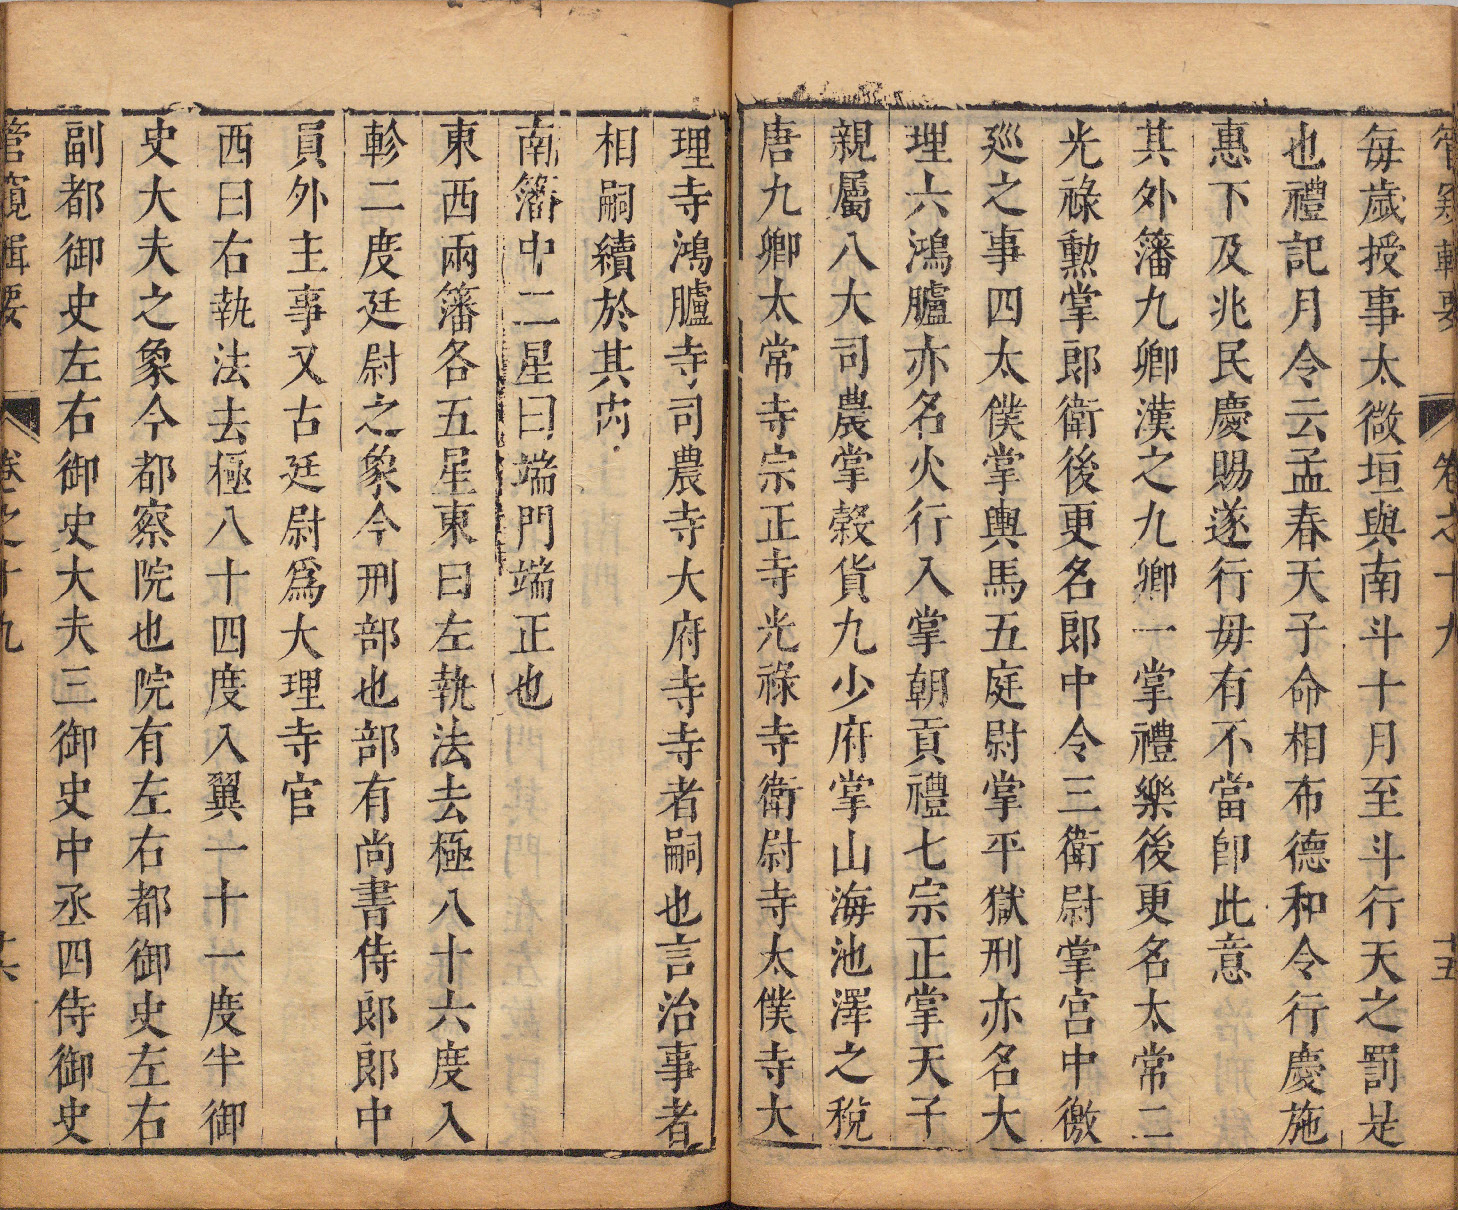 管窺輯要 卷之十九 十五
每歲授事太微垣與南斗十月至斗行天之罰是
也禮記月令云孟春天子命相布德和令行慶施
惠下及兆民慶賜遂行毋有不當卽此意
其外籓九卿漢之九卿一掌禮樂後更名太常二
光祿勲掌郎衛後更名郎中令三衛尉掌宮中徼
廵之事四太僕掌輿馬五庭尉掌平獄刑亦名大
理六鴻臚亦名火行入掌朝貢禮七宗正掌天子
親屬八大司農掌穀貨九少府掌山海池澤之稅
唐九卿太常寺宗正寺光祿寺衛尉寺太僕寺大
理寺鴻臚寺司農寺大府寺寺者嗣也言治事者
相嗣續於其內
南籓中二星曰端門端正也
東西兩籓各五星東曰左執法去極八十六度入
軫二度廷尉之象今刑部也部有尚書侍郎郎中
員外主事又古廷尉爲大理寺官
西曰右執法去極八十四度入翼一十一度半御
史大夫之象今都察院也院有左右都御史左右
副都御史左右御史大夫三御史中丞四侍御史
管窺輯要 卷之十九 十六